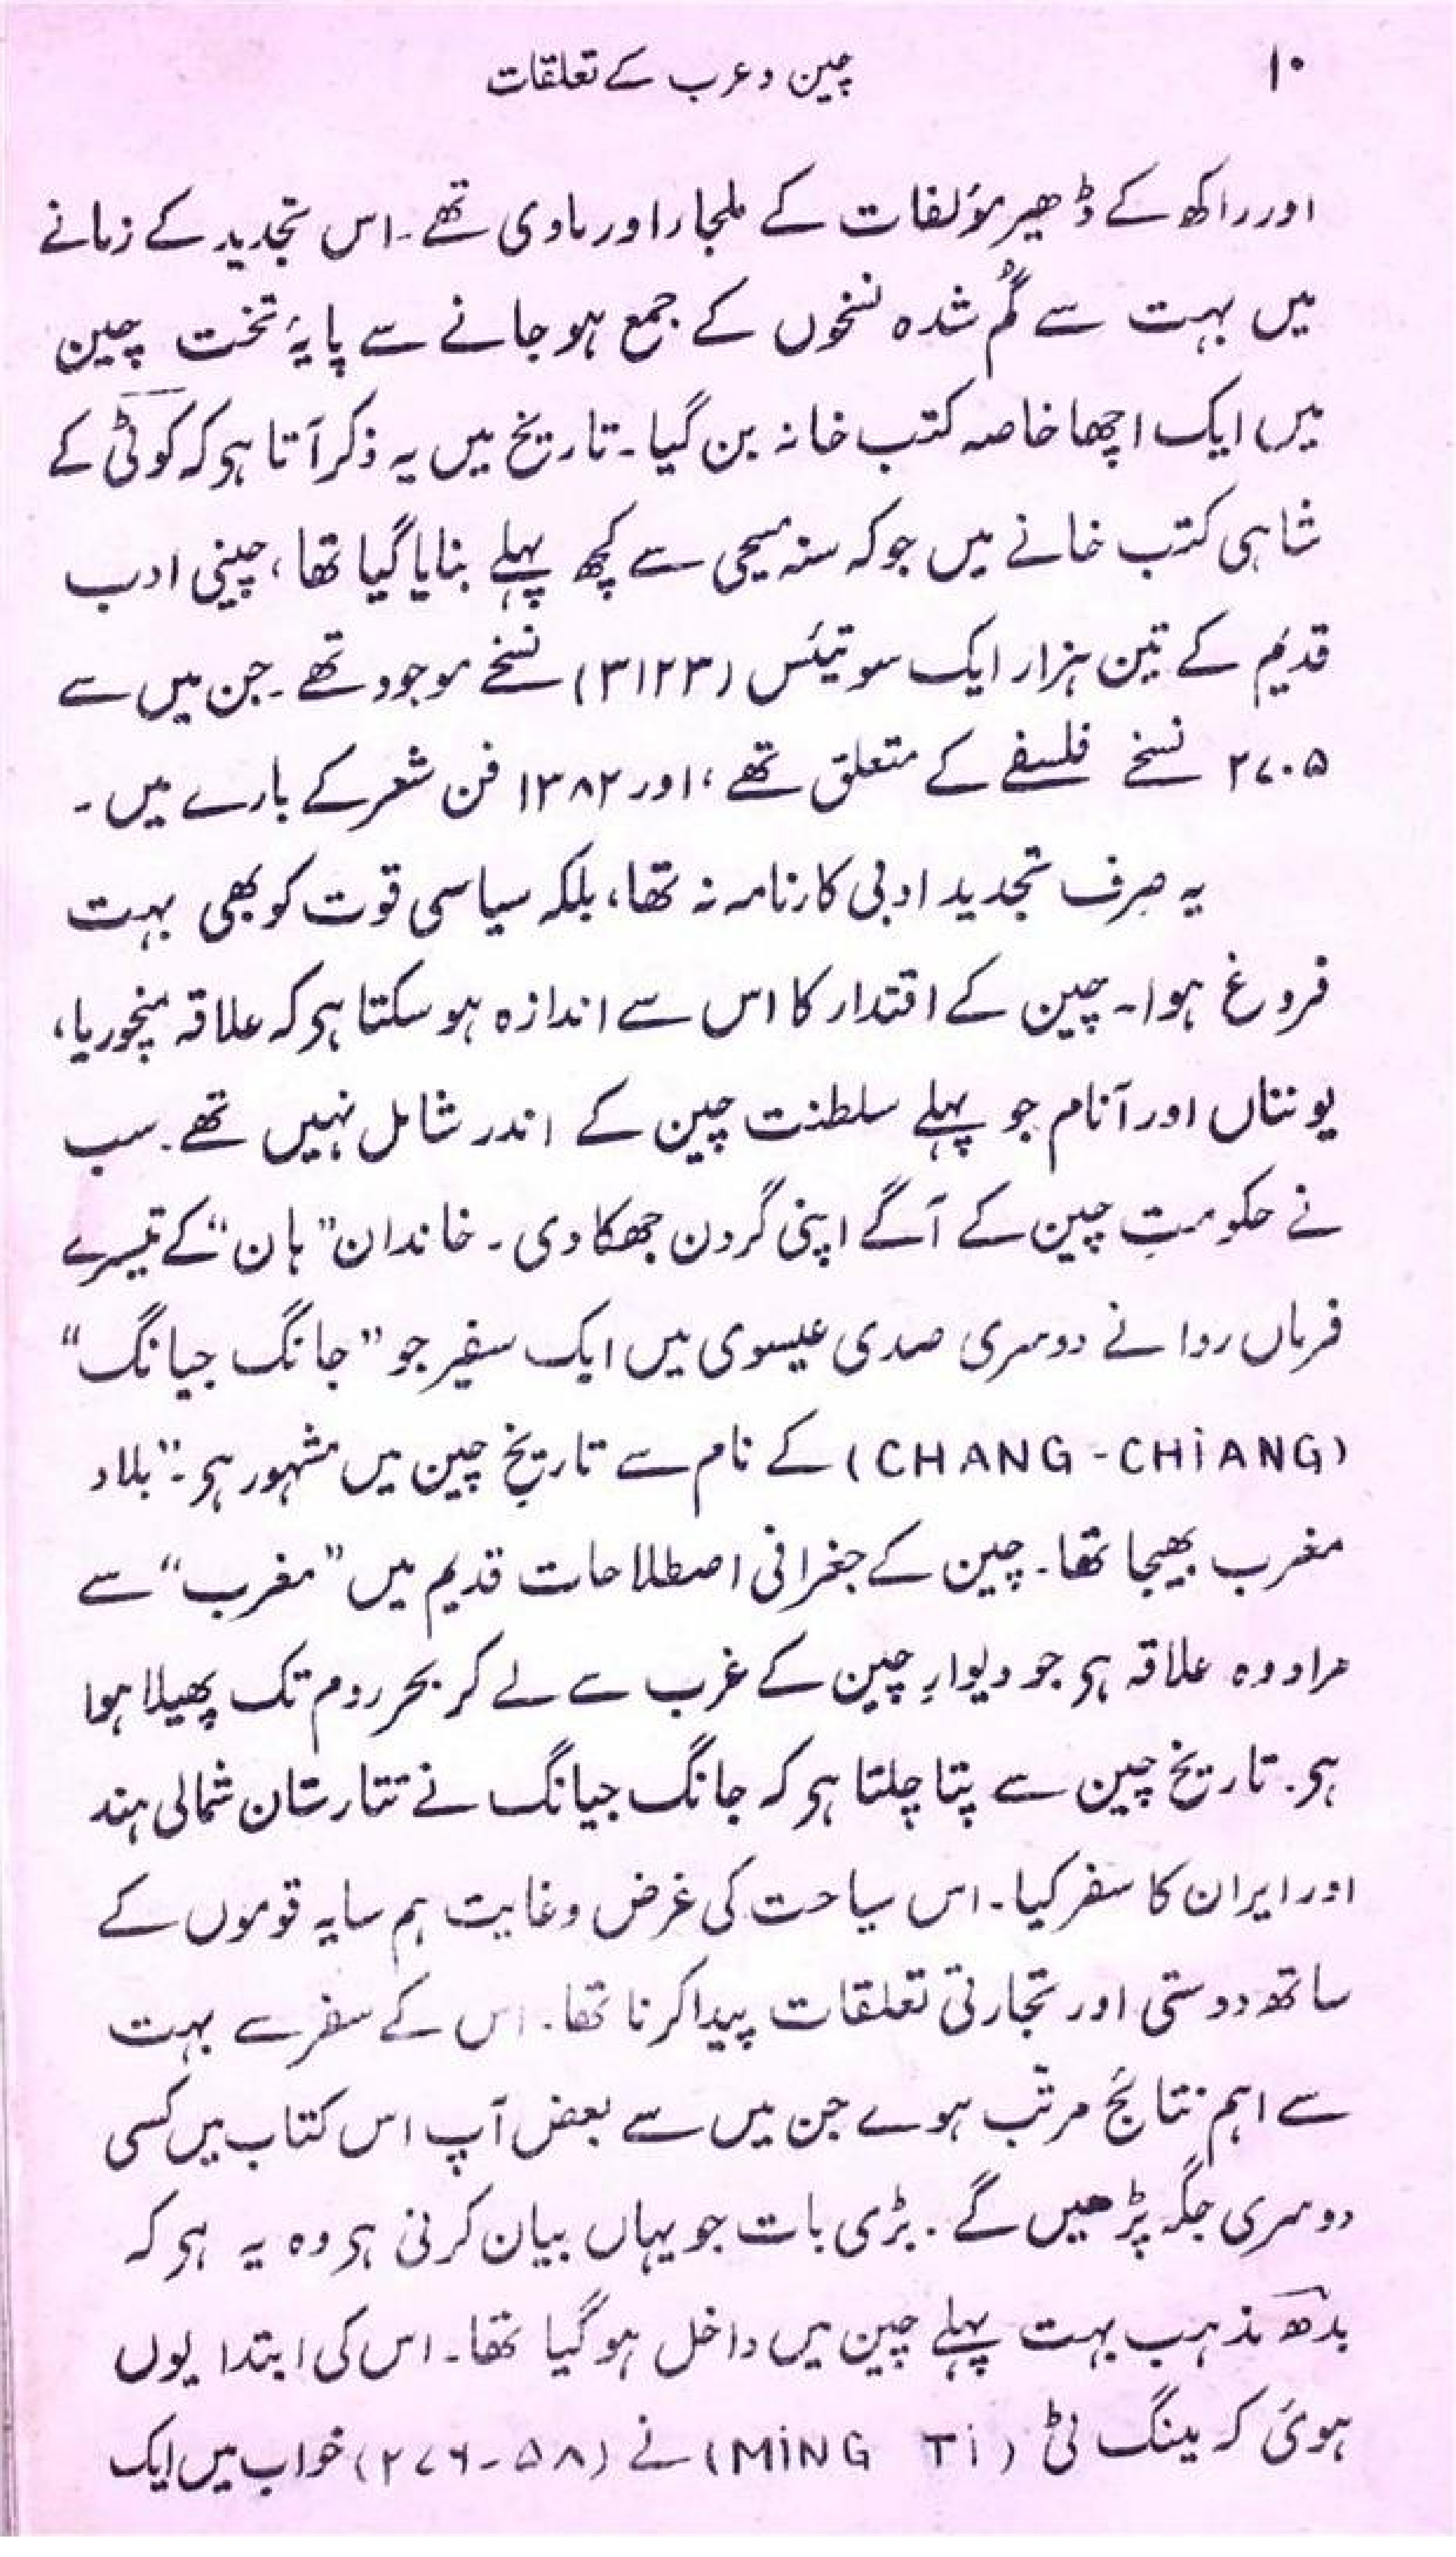 ۱۰
چین و عرب کے تعلقات
اور راکھ کے ڈھیر مؤلفات کے ملجار اور ماوی تھے۔ اس تجدید کے زمانے
میں بہت سے گُم شدہ نسخوں کے جمع ہو جانے سے پایۂ تخت چین
میں ایک اچھا خاصہ کتب خانہ بن گیا۔ تاریخ میں یہ ذکر آتا ہی کہ کوٹی کے
شاہی کتب خانے میں جو کہ سنہ مسیحی سے کچھ پہلے بنایا گیا تھا، چینی ادب
قدیم کے تین ہزار ایک سو تیئس (۳۱۲۳) نسخے موجود تھے۔ جن میں سے
۲۷۰۵ نسخے فلسفے کے متعلق تھے، اور ۱۳۸۲ فن شعر کے بارے میں۔
یہ صِرف تجدید ادبی کارنامہ نہ تھا، بلکہ سیاسی قوت کو بھی بہت
فروغ ہوا۔ چین کے اقتدار کا اس سے اندازہ ہو سکتا ہی کہ علاقہ منچوریا،
یوننان اور آنام جو پہلے سلطنت چین کے اندر شامل نہیں تھے۔ سب
نے حکومتِ چین کے آگے اپنی گردن جھکا دی۔ خاندان ”ہان“ کے تیسرے
فرماں روا نے دوسری صدی عیسوی میں ایک سفیر جو ”جانگ جیانگ“
(CHANG-CHiANG) کے نام سے تاریخِ چین میں مشہور ہی۔ ”بلاد
مغرب بھیجا تھا۔ چین کے جغرافی اصطلاحات قدیم میں ”مغرب“ سے
مراد وہ علاقہ ہی جو دیوارِ چین کے غرب سے لے کر بحر روم تک پھیلا ہوا
ہی۔ تاریخ چین سے پتا چلتا ہی کہ جانگ جیانگ نے تتارستان شمالی ہند
اور ایران کا سفر کیا۔ اس سیاحت کی غرض و غایت ہم سایہ قوموں کے
ساتھ دوستی اور تجارتی تعلقات پیدا کرنا تھا۔ اس کے سفر سے بہت
سے اہم نتائج مرتّب ہوے جن میں سے بعض آپ اس کتاب میں کسی
دوسری جگہ پڑھیں گے۔ بڑی بات جو یہاں بیان کرنی ہی وہ یہ ہی کہ
بدھ مذہب بہت پہلے چین میں داخل ہو گیا تھا۔ اس کی ابتدا یوں
ہوئی کہ مینگ ٹی (MiNG Ti) نے (۵۸-۲۷۶) خواب میں ایک